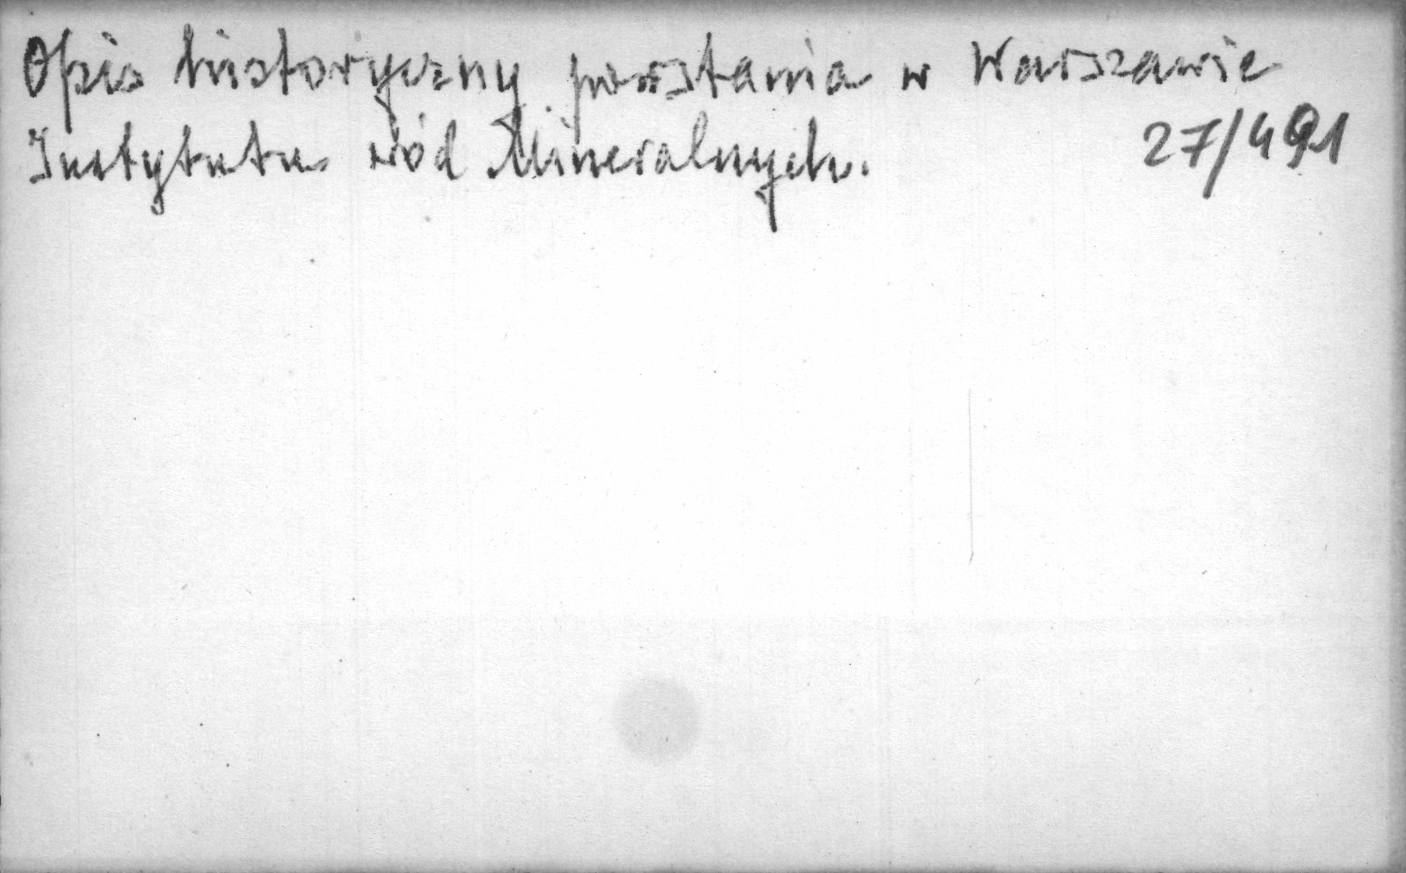 Opis historyczny powstania w Warszawie
Instytutu wód Mineralnych. 27/491